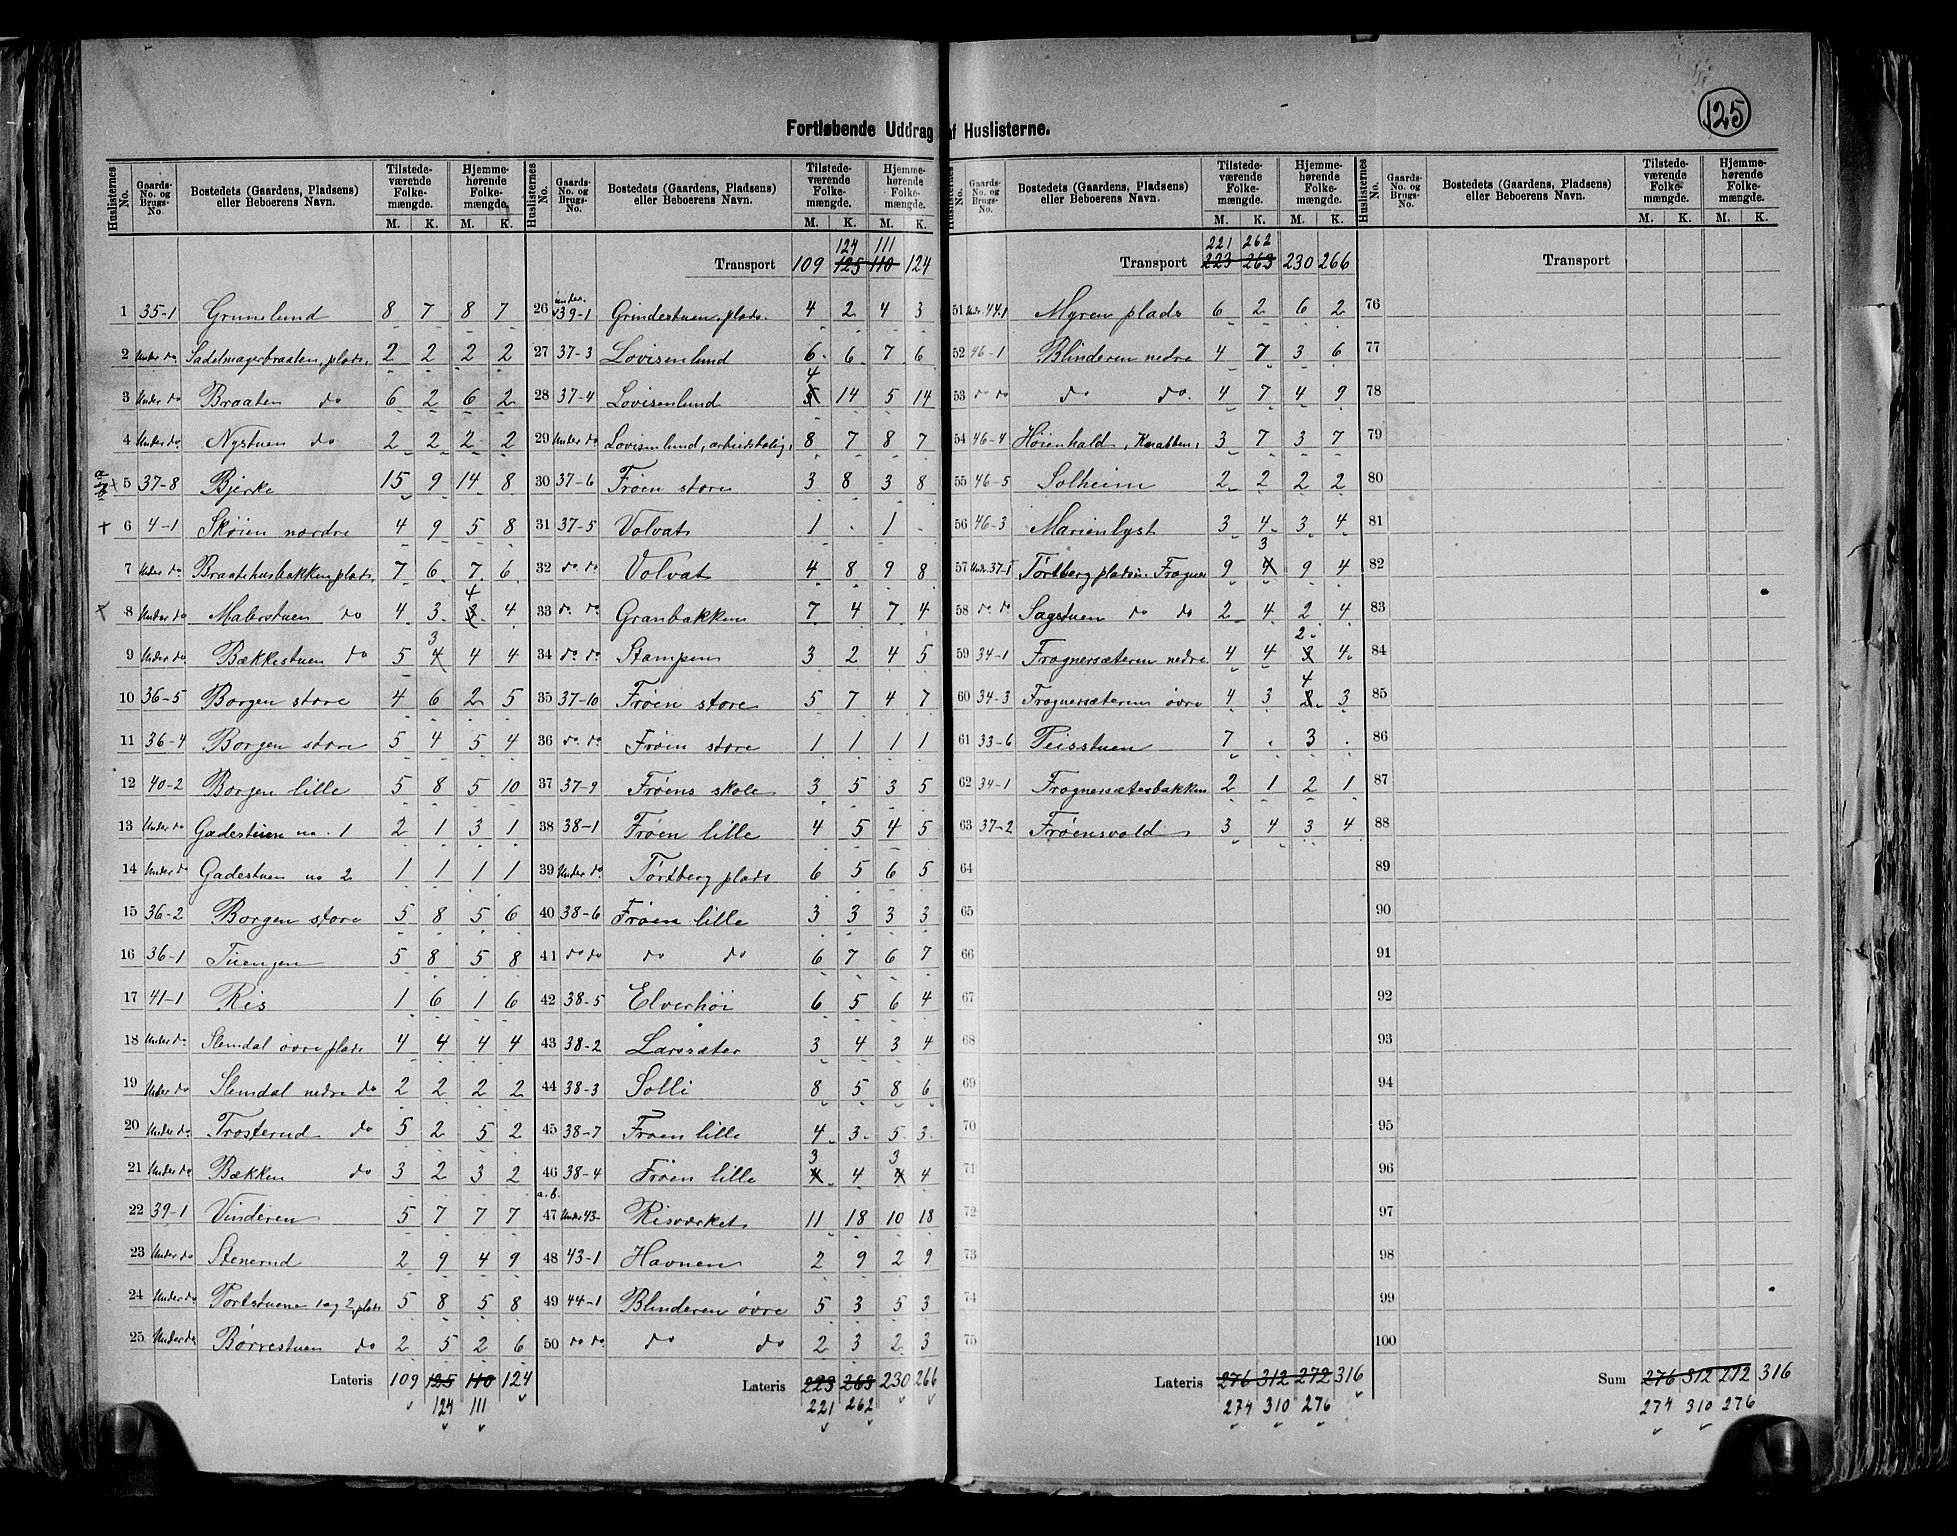 125
Fortløbende Uddrag af Huslisterne.
Huslisternes No. | Gaards-No. og Brugs-No. | Bostedets (Gaardens, Pladsens) eller Beboerens Navn. | Tilstedeværende Folkemængde. M. K. | Hjemmehørende Folkemængde. M. K.
1 35-1 Grimelund 8 7 8 7
2 Under do Sadelmagerbraaten, plads, 2 2 2 2
3 Under do Braaten do 6 2 6 2
4 Under do Nystuen do 2 2 2 2
5 37-8 Bjerke 15 9 14 8
6 4-1 Skøien nordre 4 9 5 8
7 Under do Braatehusbakken plads, 7 6 7 6
8 Under do Malerstuen do 4 3 4 4
9 Under do Bækkestuen do 5 3 4 4 4
10 36-5 Borgen store 4 6 2 5
11 36-4 Borgen store 5 4 5 4
12 40-2 Borgen lille 5 8 5 10
13 Under do Gadestuen no. 1 2 1 3 1
14 Under do Gadestuen no 2 1 1 1 1
15 36-2 Borgen store 5 8 5 6
16 36-1 Tuengen 5 8 5 8
17 41-1 Ris 1 6 1 6
18 Under do Slemdal øvre plads 4 4 4 4
19 Under do Slemdal nedre do 2 2 2 2
20 Under do Trosterud do 5 2 5 2
21 Under do Bækken do 3 2 3 2
22 39-1 Vinderen 5 7 7 7
23 Under do Stenerud 2 9 4 9
24 Under do Portstuene 1 og 2, plads 5 8 5 8
25 Under do Børrestuen do 2 5 2 6
Lateris 109 125 110 124
124 111
Huslisternes No. | Gaards-No. og Brugs-No. | Bostedets (Gaardens, Pladsens) eller Beboerens Navn. | Tilstedeværende Folkemængde. M. K. | Hjemmehørende Folkemængde. M. K.
124 111
Transport 109 125 110 124
26 under 39-1 Grindestuen, plads. 4 2 4 3
27 37-3 Lovisenlund 6 6 7 6
28 37-4 Lovisenlund 4 5 14 5 14
29 Under do Lovisenlund, arbeidsbolig, 8 7 8 7
30 37-6 Frøen store 3 8 3 8
31 37-5 Volvat 1 . 1 .
32 do do Volvat 4 8 9 8
33 do do Granbakken 7 4 7 4
34 do do Stampen 3 2 4 5
35 37-10 Frøen store 5 7 4 7
36 do do Frøen store 1 1 1 1
37 37-9 Frøens skole 3 5 3 5
38 38-1 Frøen lille 4 5 4 5
39 Under do Tørtberg plads 6 5 6 5
40 38-6 Frøen lille 3 3 3 3
41 do do do do 6 7 6 7
42 38-5 Elverhøi 6 5 6 4
43 38-2 Larssæter 3 4 3 4
44 38-3 Solli 8 5 8 6
45 38-7 Frøen lille 4 3 5 3
46 38-4 Frøen lille 3 4 4 3 4 4
a.b.
47 Under 43- Risværket 11 18 10 18
48 43-1 Havnen 2 9 2 9
49 44-1 Blinderen øvre 5 3 5 3
50 do do do do 2 3 2 3
Lateris 223 263 230 266
221 262
Huslisternes No. | Gaards-No. og Brugs-No. | Bostedets (Gaardens, Pladsens) eller Beboerens Navn. | Tilstedeværende Folkemængde. M. K. | Hjemmehørende Folkemængde. M. K.
221 262
Transport 223 263 230 266
51 Und. 44-1 Myren plads 6 2 6 2
52 46-1 Blinderen nedre 4 7 3 6
53 do do do do. 4 7 4 9
54 46-4 Høienhald, Knatten, 3 7 3 7
55 46-5 Solheim 2 2 2 2
56 46-3 Marienlyst 3 4 3 4
57 Und. 37-1 Tørtberg plads u. Frogner 9 3 4 9 4
58 do do Sagstuen do do 2 4 2 4
59 34-1 Frognersæteren nedre 4 4 2 3 4
60 34-3 Frognersæteren øvre 4 3 4 3
61 33-6 Peisstuen 7 . 3 .
62 34-1 Frognersæterbakken 2 1 2 1
63 37-2 Frøensvold 3 4 3 4
64
65
66
67
68
69
70
71
72
73
74
75
Lateris 276 312 272 316
274 310 276
Huslisternes No. | Gaards-No. og Brugs-No. | Bostedets (Gaardens, Pladsens) eller Beboerens Navn. | Tilstedeværende Folkemængde. M. K. | Hjemmehørende Folkemængde. M. K.
Transport
76
77
78
79
80
81
82
83
84
85
86
87
88
89
90
91
92
93
94
95
96
97
98
99
100
Sum 276 312 272 316
274 310 276